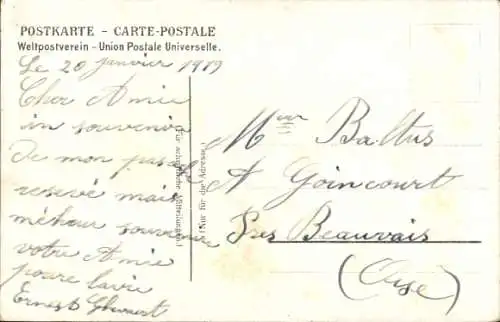 POSTKARTE – CARTE-POSTALE
Weltpostverein – Union Postale Universelle.
Le 20 Janvier 1919
Cher Amie
in souvenir
de mon
reservé mais
souvenire
votre Amie
poure lavie
Ernest
(Für schriftliche Mitteilungen)
(Nur für die Adresse)
Mme Baltus
A Goincourt
Pres Beauvais
(Oise)